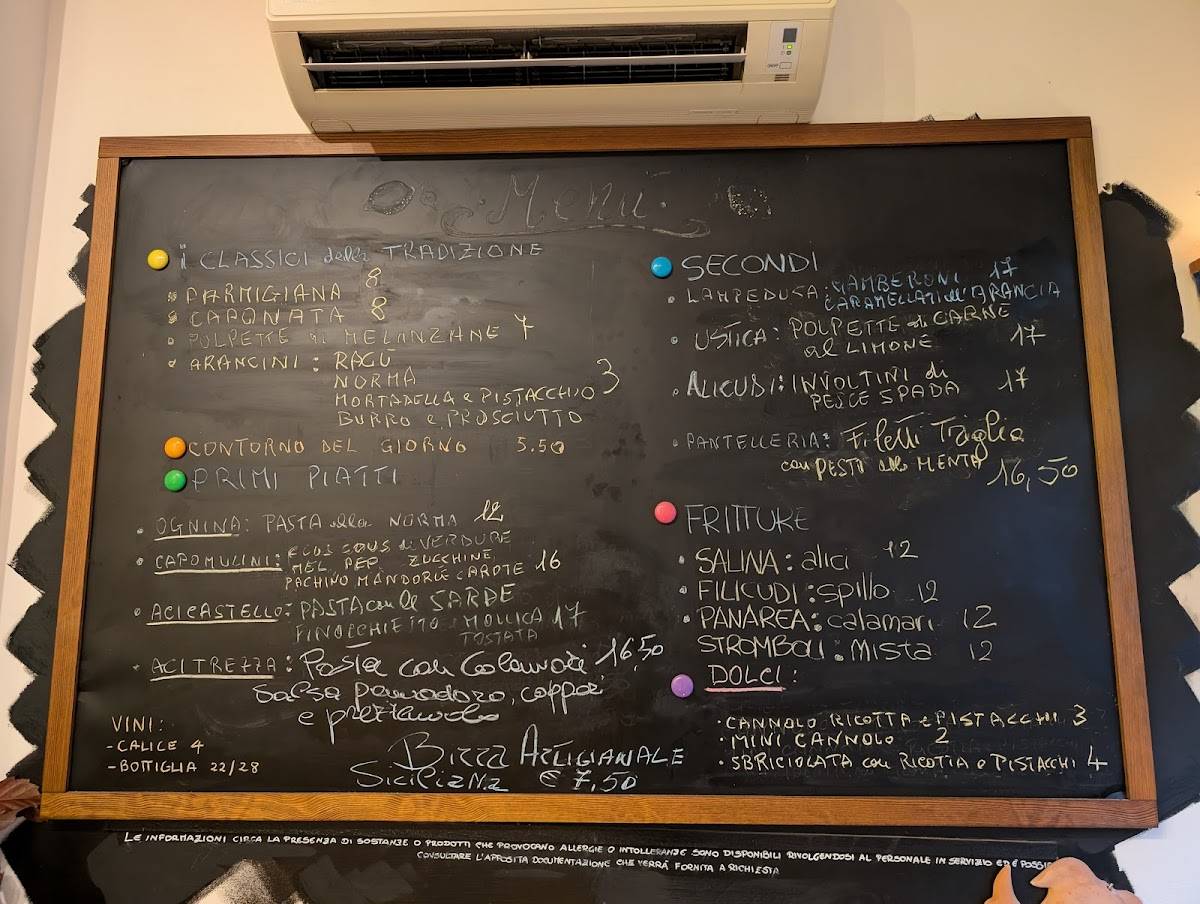 Menù
i CLASSICI della TRADIZIONE
PARMIGIANA 8
CAPONATA 8
POLPETTE di MELANZANE 7
ARANCINI: RAGÙ
NORMA
MORTADELLA e PISTACCHIO 3
BURRO e PROSCIUTTO
CONTORNO DEL GIORNO 5.50
PRIMI PIATTI
OGNINA: PASTA alla NORMA 12
CAPOMULINI: COUS COUS di VERDURE
MEL, PEP, ZUCCHINE,
PACHINO MANDORLE CAROTE 16
ACICASTELLO: PASTA con le SARDE
FINOCCHIETTO MOLLICA 17
TOSTATA
ACITREZZA: Pasta con Calamari 16,50
Salsa pomodoro, capperi
e prezzemolo
VINI:
- CALICE 4
- BOTTIGLIA 22/28
BIRRA ARTIGIANALE
SICILIANA € 7,50
SECONDI
LAMPEDUSA: GAMBERONI 17
CARAMELLATI all'ARANCIA
USTICA: POLPETTE di CARNE
al LIMONE 17
ALICUDI: INVOLTINI di 17
PESCE SPADA
PANTELLERIA: Filetti Triglia
con PESTO alla MENTA 16,50
FRITTURE
SALINA: alici 12
FILICUDI: spillo 12
PANAREA: calamari 12
STROMBOLI: Mista 12
DOLCI:
· CANNOLO RICOTTA e PISTACCHI 3
· MINI CANNOLO 2
· SBRICIOLATA con RICOTTA e PISTACCHI 4
LE INFORMAZIONI CIRCA LA PRESENZA DI SOSTANZE O PRODOTTI CHE PROVOCANO ALLERGIE O INTOLLERANZE SONO DISPONIBILI RIVOLGENDOSI AL PERSONALE IN SERVIZIO ED È
CONSULTARE L'APPOSITA DOCUMENTAZIONE CHE VERRÀ FORNITA A RICHIESTA